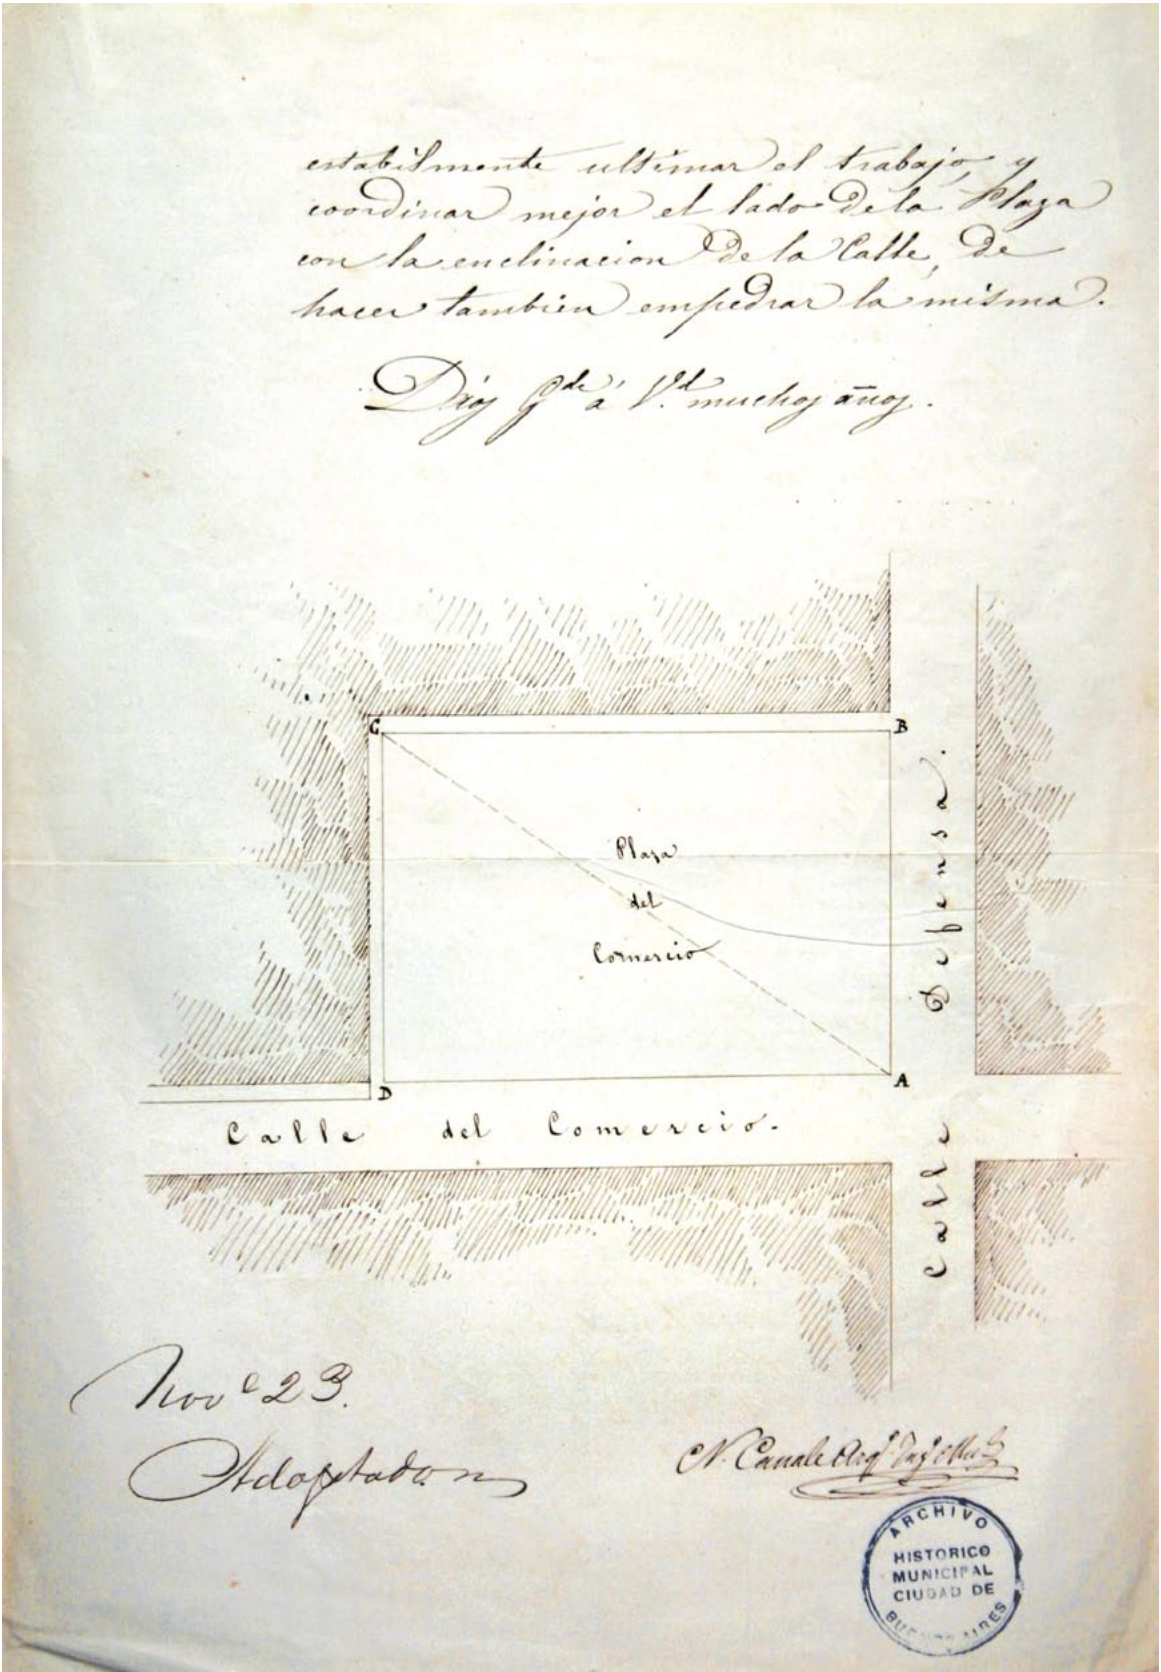 estabilmente ultimar el trabajo, y
coordinar mejor el lado de la Plaza
con la enclinacion de la Calle, de
hacer tambien empedrar la misma.
Dios Gde á Vd. muchos años.
C
B
Plaza
del
Comercio
Calle Defensa.
D
A
Calle del Comercio.
Nove 23.
Adoptado
N. Canale Arqo. Ingo.
ARCHIVO
HISTORICO
MUNICIPAL
CIUDAD DE
BUENOS AIRES